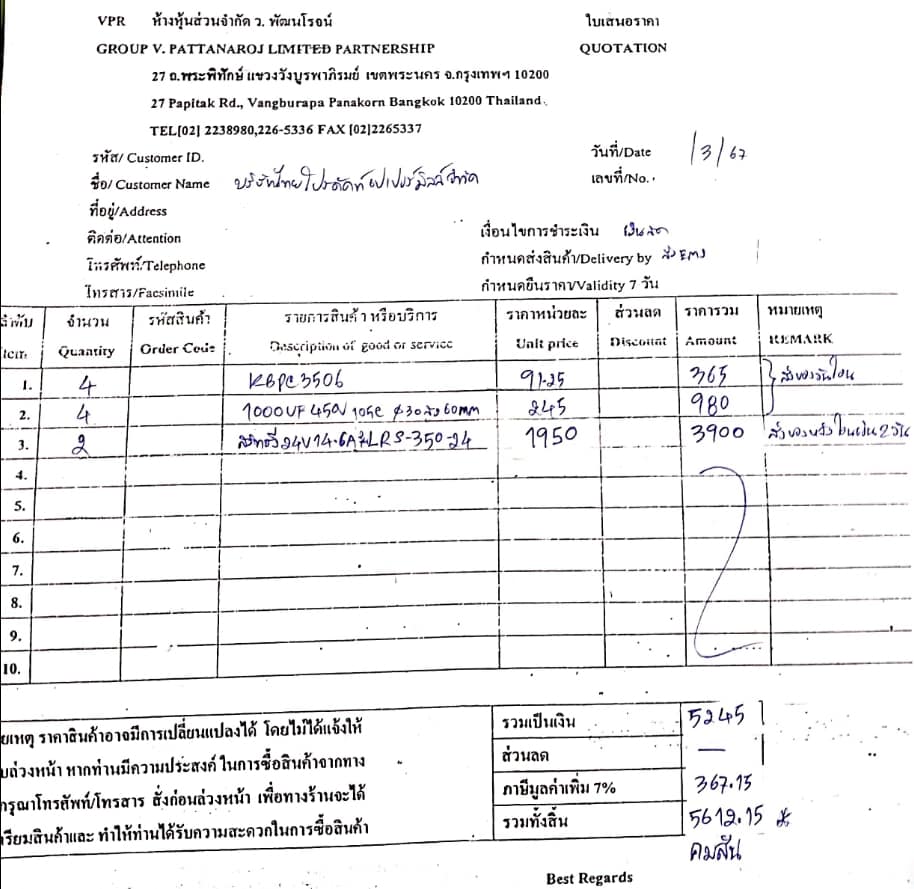 VPR ห้างหุ้นส่วนจำกัด ว. พัฒนโรจน์ ใบเสนอราคา
GROUP V. PATTANAROJ LIMITED PARTNERSHIP QUOTATION
27 ถ.พระพิทักษ์ แขวงวังบูรพาภิรมย์ เขตพระนคร จ.กรุงเทพฯ 10200
27 Papitak Rd., Vangburapa Panakorn Bangkok 10200 Thailand.
TEL[02] 2238980,226-5336 FAX [02]2265337
รหัส/ Customer ID. วันที่/Date /3/67
ชื่อ/ Customer Name บริษัทไทยโปรดักท์เปเปอร์มิลล์จำกัด เลขที่/No.
ที่อยู่/Address
ติดต่อ/Attention เงื่อนไขการชำระเงิน เงินสด
โทรศัพท์/Telephone กำหนดส่งสินค้า/Delivery by ส่ง EMS
โทรสาร/Facsimile กำหนดยืนราคา/Validity 7 วัน
ลำดับ จำนวน รหัสสินค้า รายการสินค้า หรือบริการ ราคาหน่วยละ ส่วนลด ราคารวม หมายเหตุ
Item Quantity Order Code Description of good or service Unit price Discount Amount REMARK
1. 4 KBPC3506 91.25 365 ส่งของวันโอน
2. 4 1000UF 450V 105C ϕ30 สูง 60mm 245 980
3. 2 24V14.6A LRS-350-24 1950 3900 ส่งของหลังโอนเงิน 2 วัน
4.
5.
6.
7.
8.
9.
10.
ยเหตุ ราคาสินค้าอาจมีการเปลี่ยนแปลงได้ โดยไม่ได้แจ้งให้ รวมเป็นเงิน 5245
ล่วงหน้า หากท่านมีความประสงค์ ในการซื้อสินค้าจากทาง ส่วนลด —
กรุณาโทรศัพท์/โทรสาร สั่งก่อนล่วงหน้า เพื่อทางร้านจะได้ ภาษีมูลค่าเพิ่ม 7% 367.15
รียมสินค้าและ ทำให้ท่านได้รับความสะดวกในการซื้อสินค้า รวมทั้งสิ้น 5612.15
คมสัน
Best Regards